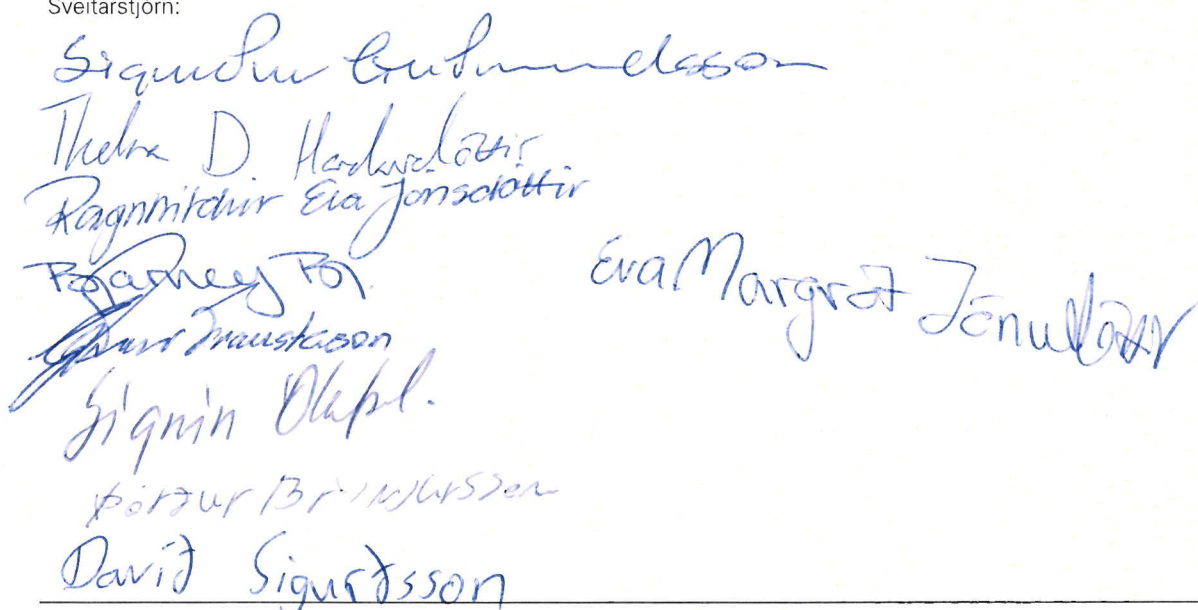 Sveitarstjórn:
Sigurður Guðmundsson
Thelma D. Harðardóttir
Ragnhildur Eva Jónsdóttir
Bjarney Bj.
Eva Margrét Jónudóttir
Traustason
Sigrún Ólafsd.
Þórður Brynjarsson
Davíð Sigurðsson